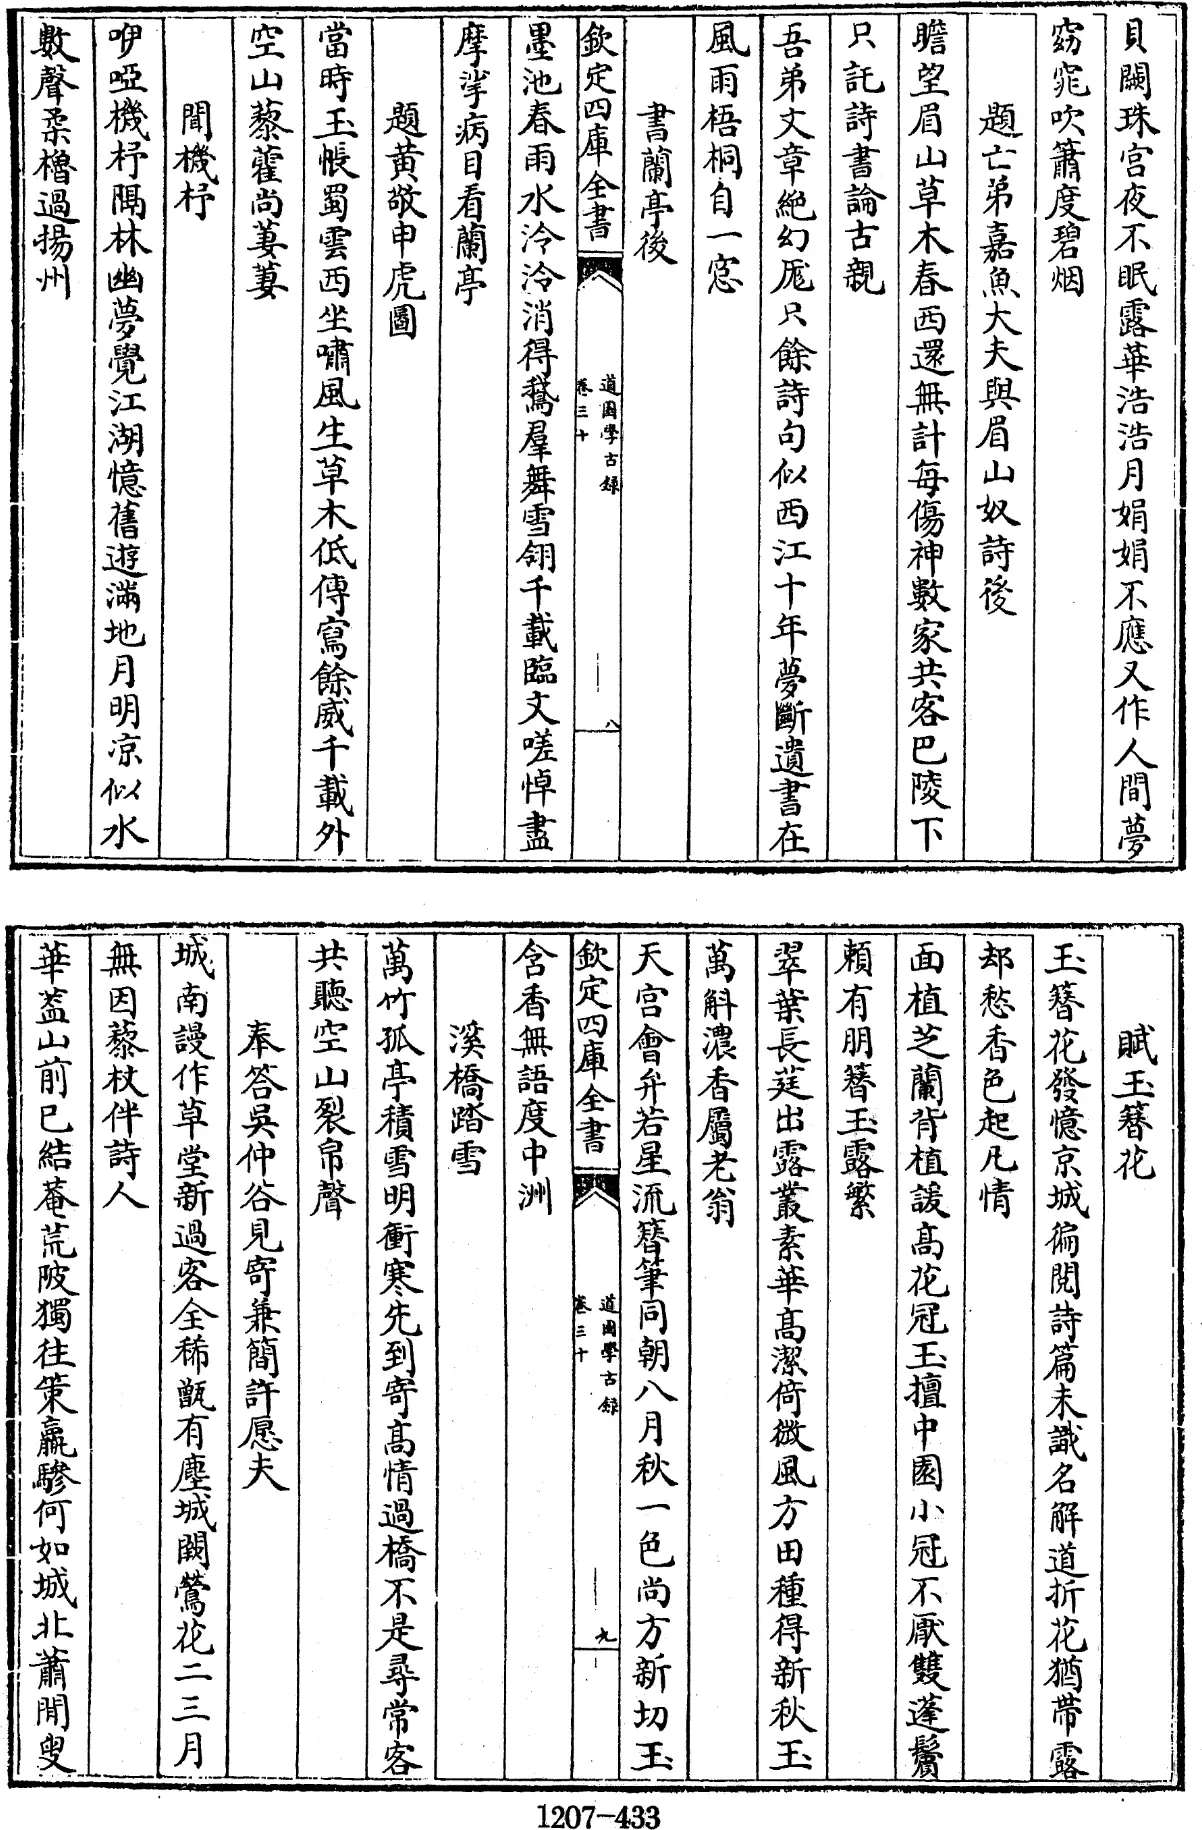 貝闕珠宫夜不眠露華浩浩月娟娟不應又作人間夢
窈窕吹簫度碧烟
題亡弟嘉魚大夫與眉山奴詩後
瞻望眉山草木春西還無計每傷神數家共客巴陵下
只託詩書論古親
吾弟文章絶幻厖只餘詩句似西江十年夢斷遺書在
風雨梧桐自一窓
書蘭亭後
欽定四庫全書
道園學古録
卷三十
八
墨池春雨水泠泠消得鵞羣舞雪翎千載臨文嗟悼盡
摩挲病目看蘭亭
題黄敬申虎圖
當時玉帳蜀雲西坐嘯風生草木低傳寫餘威千載外
空山藜藿尚萋萋
聞機杼
咿啞機杼隔林幽夢覺江湖憶舊遊滿地月明凉似水
數聲柔櫓過揚州
賦玉簪花
玉簪花發憶京城徧閲詩篇未識名解道折花猶帶露
却愁香色起凡情
面植芝蘭背植諼高花冠玉擅中園小冠不厭雙蓬鬢
頼有朋簪玉露繁
翠葉長莛出露叢素華高潔倚微風方田種得新秋玉
萬斛濃香屬老翁
天宫會弁若星流簪筆同朝八月秋一色尚方新切玉
欽定四庫全書
道園學古録
卷三十
九
含香無語度中洲
溪橋踏雪
萬竹孤亭積雪明衝寒先到寄高情過橋不是尋常客
共聽空山裂帛聲
奉答吳仲谷見寄兼簡許愿夫
城南謾作草堂新過客全稀甑有塵城闕鶯花二三月
無因藜杖伴詩人
華盖山前已結菴荒陂獨往策羸驂何如城北蕭閒叟
1207-433